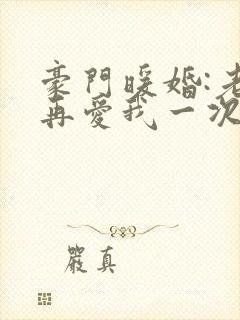 豪門暖婚:老
再愛我一次
嚴真